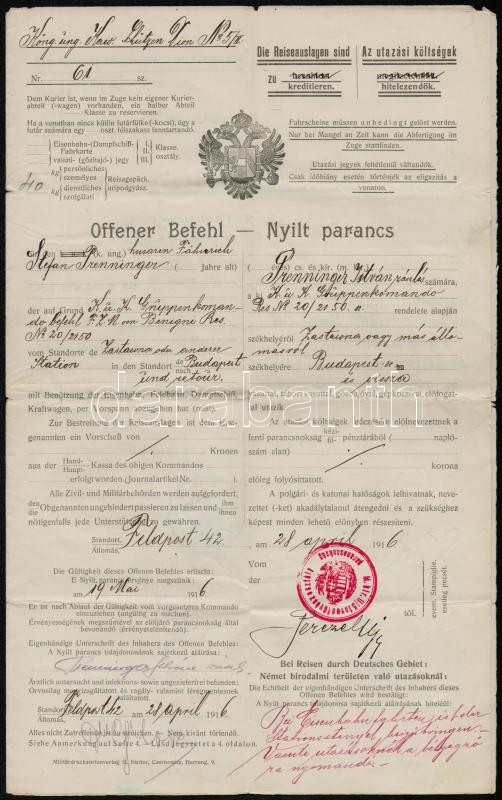 Köng. ung. Kav. Schützen Dion No 5/II
Nr. 61 sz.
Die Reiseauslagen sind
zu
kreditieren.
Az utazási költségek
hitelezendők.
Dem Kurier ist, wenn im Zuge kein eigener Kurier-
abteil (-wagen) vorhanden, ein halber Abteil
Klasse zu reservieren.
Ha a vonatban nincs külön futárfülke (-kocsi), úgy a
futár számára egy oszt. félszakasz fenntartandó.
Eisenbahn-(Dampfschiff-
Fahrkarte
vasuti- (gőzhajó-) jegy
I.
II.
III.
Klasse.
osztály.
40
kg persönliches
személyes
kg dienstliches
szolgálati
Reisegepäck.
utipodgyász.
Fahrscheine müssen unbedingt gelöst werden.
Nur bei Mangel an Zeit kann die Abfertigung im
Zuge stattfinden.
Utazási jegyek feltétlenül váltandók.
Csak időhiány esetén történjék az eligazítás a
vonaton.
Offener Befehl — Nyilt parancs
(k. ung.) husaren Fähnrich
Stefan Prenninger ( Jahre alt)
der auf Grund K. u. K. Gruppenkoman-
do befehl F.Z.M. von Benigni Res.
No 20/2150
vom Standorte Zastawna oder anderer
Station in den Standort de Budapest
nach
und retour.
mit Benützung der Eisenbahn, Feldbahn, Dampfschiff,
Kraftwagen, per Vorspann abzugehen hat (reist).
Zur Bestreitung der Reiseauslagen ist dem Ent-
genannten ein Vorschuß von
Kronen
aus der Hand-
Haupt- Kassa des obigen Kommandos
erfolgt worden (Journalartikel Nr. ).
Alle Zivil- und Militärbehörden werden aufgefordert,
den
die Obgenannten ungehindert passieren zu lassen und ihm
ihnen
nötigenfalls jede Unterstützung zu gewähren.
( éves) cs. és kir. (m. kir.)
Prenninger István zászlós számára,
a K. u. K. Gruppenkomando
Res No 20/2150. a rendelete alapján
székhelyéről Zastawna vagy más állo-
másról
székhelyére Budapest-re
és vissza
vasuttal, tábori vasuttal, gőzhajóval, gépkocsival, előfogat-
tal utazik.
Az utazási költségek fedezésére előlnevezettnek a
fenti parancsnokság kézi-
fő- pénztárából ( napló-
szám alatt)
korona
előleg folyósíttatott.
A polgári- és katonai hatóságok felhivatnak, neve-
zettet (-ket) akadálytalanul átengedni és a szükséghez
képest minden lehető előnyben részesíteni.
Standort
Állomás, Feldpost 42. am 28 april 1916
Die Gültigkeit dieses Offenen Befehles erlischt:
E Nyilt parancs érvénye megszűnik:
am 19 Mai 1916
Vom
der
től.
event. Stampiglie.
esetleg pecsét.
Er ist nach Ablauf der Gültigkeit vom vorgesetzten Kommando
einzuziehen (ungültig zu machen).
Érvényességének megszüntével az elöljáró parancsnokság által
bevonandó (érvénytelenítendő).
Eigenhändige Unterschrift des Inhabers des Offenen Befehles:
A Nyilt parancs tulajdonosának sajátkezű aláírása:
Prenninger István zászl.
Ärztlich untersucht und infektions- sowie ungezieferfrei befunden:
Orvosilag megvizsgáltatott és ragály- valamint féregmentesnek
találtatott.
Standort
Állomás, Feldpost 42 am 28 april 1916
Bei Reisen durch Deutsches Gebiet:
Német birodalmi területen való utazásoknál:
Die Echtheit der eigenhändigen Unterschrift des Inhabers dieses
Offenen Befehles wird bestätigt:
A Nyilt parancs tulajdonosának sajátkezű aláírása
Bei Eisenbahnfahrten ist der
Stationsstempel beizubringen.
Vasuti utazásoknál a bélyegző
rányomandó.
Siehe Anmerkung auf Seite 4. — Lásd jegyzetet a 4. oldalon.
Militärdrucksortenverlag O. Harter, Czernowitz, Herreng. 9.
darabanth